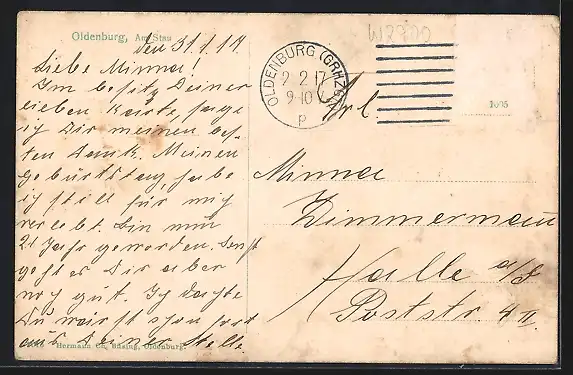 Oldenburg, Am Stau
den 31.1.17
Liebe Minna!
Im besitz Deiner
lieben Karte, sage
ich Dir meinen
ten Dank. Meinen
Geburtstag, habe
ich still für mich
verlebt. Bin nun
21 Jahr geworden. Sonst
geht es Dir aber
noch gut. Ich dachte
Du wärst schon fort
aus Deiner Stelle.
Hermann Büsing, Oldenburg.
OLDENBURG (GRHZGT)
2.2.17
9-10 V
P
Frl
Minna
Zimmermann
Halle a/S
Poststr